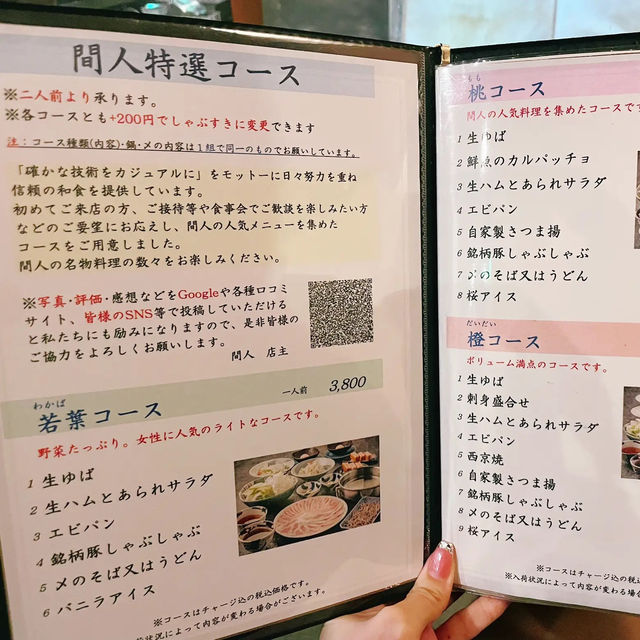 間人特選コース
※二人前より承ります。
※各コースとも+200円でしゃぶすきに変更できます
注：コース種類(内容)・鍋・〆の内容は1組で同一のものでお願いしています。
「確かな技術をカジュアルに」をモットーに日々努力を重ね
信頼の和食を提供しています。
初めてご来店の方、ご接待等や食事会でご歓談を楽しみたい方
などのご要望にお応えし、間人の人気メニューを集めた
コースをご用意しました。
間人の名物料理の数々をお楽しみください。
※写真・評価・感想などをGoogleや各種口コミ
サイト、皆様のSNS等で投稿していただける
と私たちにも励みになりますので、是非皆様の
ご協力をよろしくお願いします。
間人 店主
わかば
若葉コース 一人前 3,800
野菜たっぷり。女性に人気のライトなコースです。
1 生ゆば
2 生ハムとあられサラダ
3 エビパン
4 銘柄豚しゃぶしゃぶ
5 〆のそば又はうどん
6 バニラアイス
※コースはチャージ込の税込価格です。
※入荷状況によって内容が変わる場合がございます。
もも
桃コース
間人の人気料理を集めたコースです
1 生ゆば
2 鮮魚のカルパッチョ
3 生ハムとあられサラダ
4 エビパン
5 自家製さつま揚
6 銘柄豚しゃぶしゃぶ
7 〆のそば又はうどん
8 桜アイス
だいだい
橙コース
ボリューム満点のコースです。
1 生ゆば
2 刺身盛合せ
3 生ハムとあられサラダ
4 エビパン
5 西京焼
6 自家製さつま揚
7 銘柄豚しゃぶしゃぶ
8 〆のそば又はうどん
9 桜アイス
※コースはチャージ込の税込
※入荷状況によって内容が変わる場合